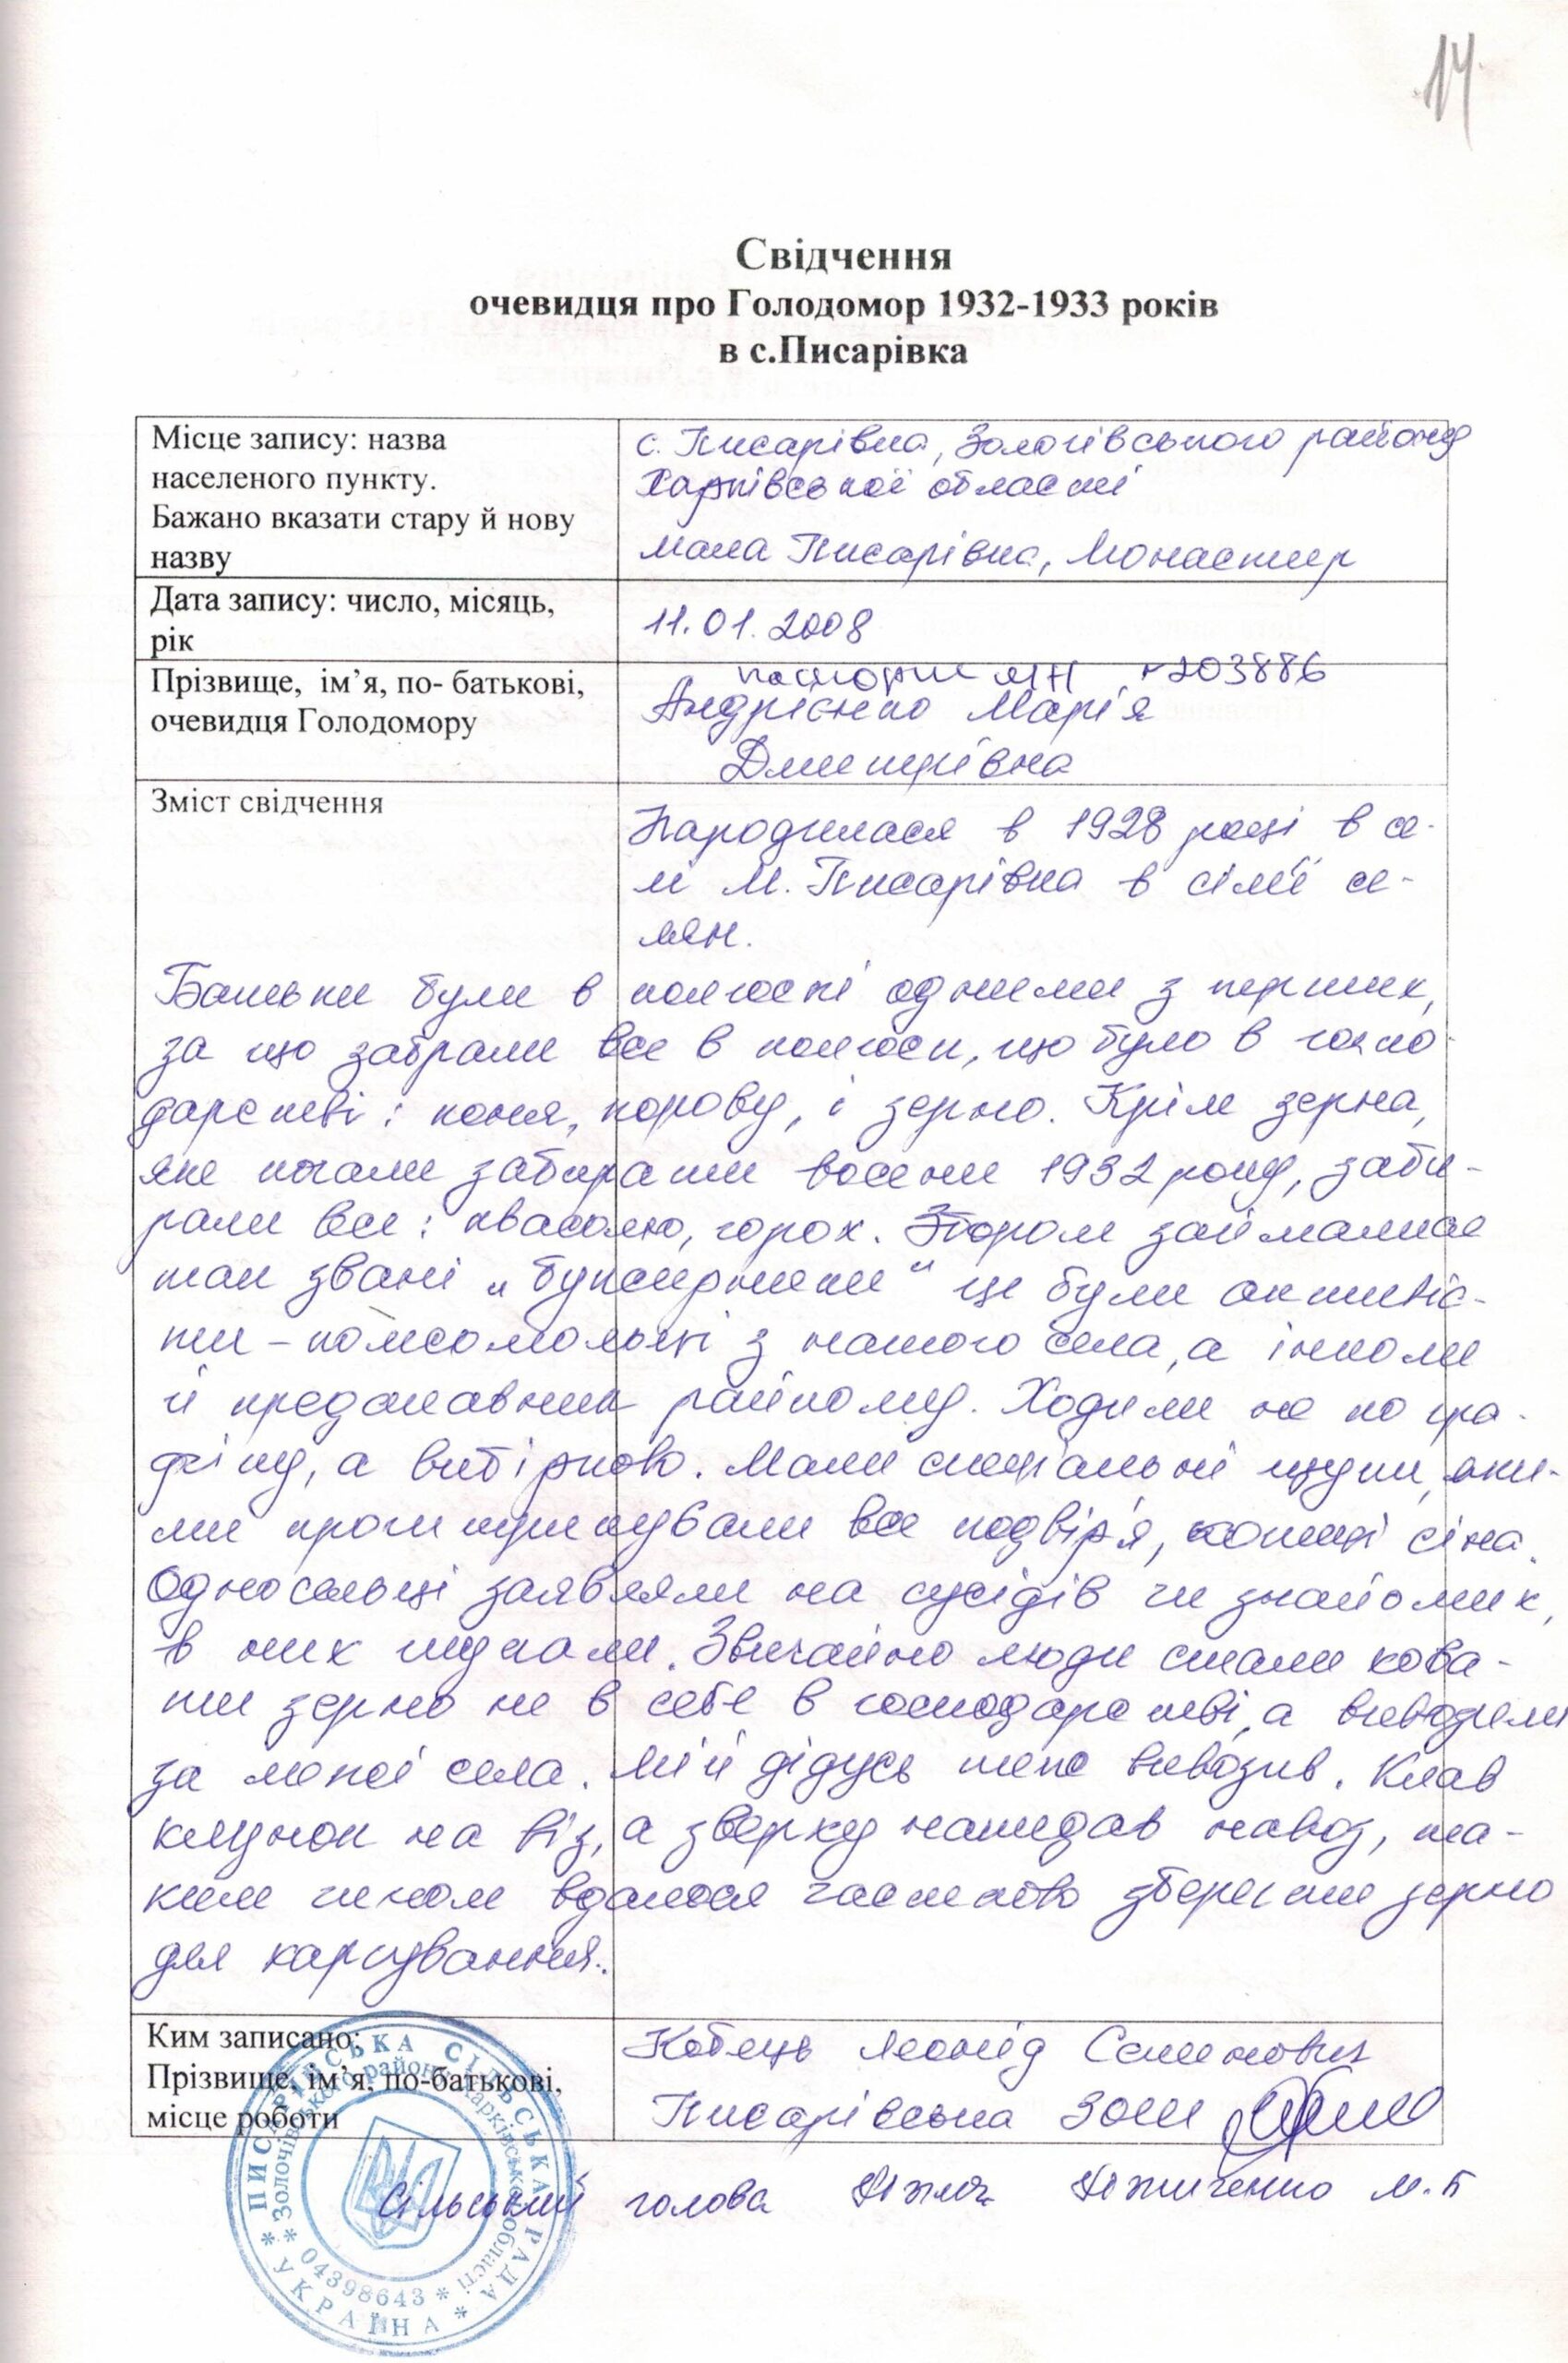 14
Свідчення
очевидця про Голодомор 1932-1933 років
в с.Писарівка
Місце запису: назва
населеного пункту.
Бажано вказати стару й нову
назву
с. Писарівка, Золочівського району
Харківської області
мала Писарівка, Монастир
Дата запису: число, місяць,
рік
11.01.2008
Прізвище, ім’я, по- батькові,
очевидця Голодомору
паспорт МН 203886
Андрієнко Марія
Дмитрівна
Зміст свідчення
Народилася в 1928 році в се-
лі М. Писарівка в сім'ї се-
лян.
Батьки були в колгоспі одними з перших,
за що забрали все в колгосп, що було в госпо-
дарстві: коня, корову, і зерно. Крім зерна,
яке почали забирати восени 1932 року, заби-
рали все: квасолю, горох. Збором займалися
так звані „буксирники“ це були активіс-
ти – комсомольці з нашого села, а інколи
й представник райкому. Ходили не по гра-
фіку, а вибірково. Мали спеціальні щупи, яки-
ми проштрикували все подвір'я, копиці сіна.
Односельці заявляли на сусідів чи знайомих,
в них шукали. Звичайно люди стали хова-
ти зерно не в себе в господарстві, а вивозили
за межі села. Мій дідусь теж вивозив. Клав
клунок на віз, а зверху накидав навоз, та-
ким чином вдалося частково зберегти зерно
для харчування.
Ким записано:
Прізвище, ім’я, по-батькові,
місце роботи
Кобець Леонід Семенович
Писарівська ЗОШ
Сільський голова М. П
ПИСАРІВСЬКА СІЛЬСЬКА РАДА * УКРАЇНА *
Золочівського району Харківської області * 04398643 *